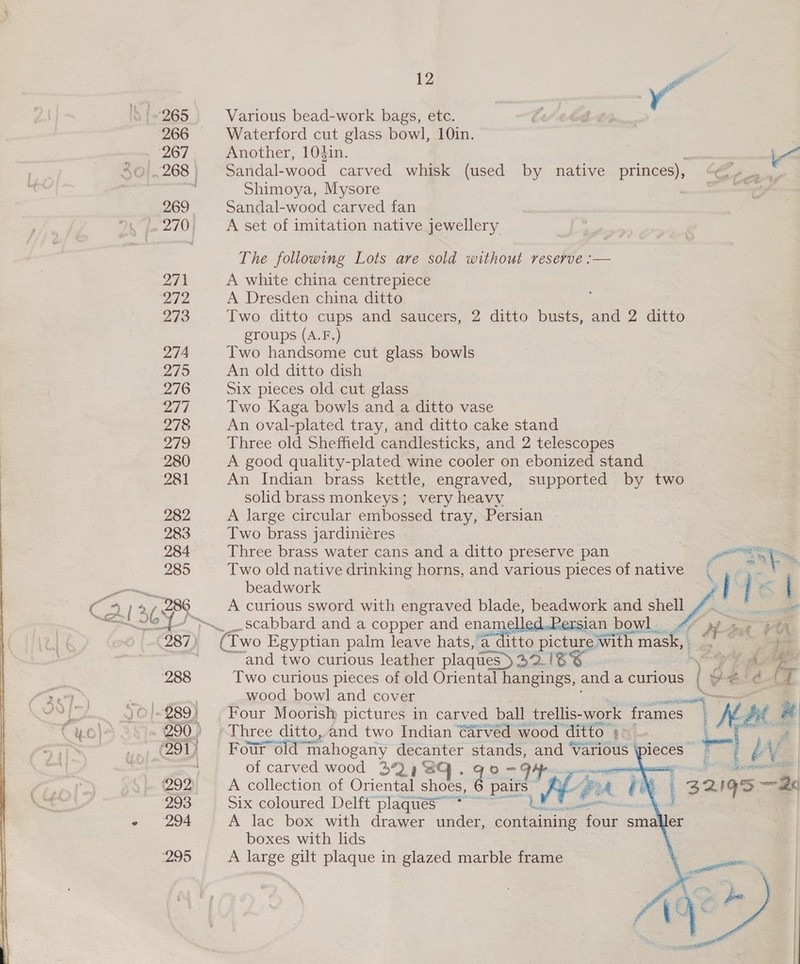 12
265 Various bead-work bags, etc.
266 Waterford cut glass bowl, 10in.
267 Another, 10½in.
268 Sandal-wood carved whisk (used by native princes),
Shimoya, Mysore
269 Sandal-wood carved fan
270 A set of imitation native jewellery
The following Lots are sold without reserve:—
271 A white china centrepiece
272 A Dresden china ditto
273 Two ditto cups and saucers, 2 ditto busts, and 2 ditto
groups (A.F.)
274 Two handsome cut glass bowls
275 An old ditto dish
276 Six pieces old cut glass
277 Two Kaga bowls and a ditto vase
278 An oval-plated tray, and ditto cake stand
279 Three old Sheffield candlesticks, and 2 telescopes
280 A good quality-plated wine cooler on ebonized stand
281 An Indian brass kettle, engraved, supported by two
solid brass monkeys; very heavy
282 A large circular embossed tray, Persian
283 Two brass jardinières
284 Three brass water cans and a ditto preserve pan
285 Two old native drinking horns, and various pieces of native
beadwork
286 A curious sword with engraved blade, beadwork and shell
scabbard and a copper and enamelled Persian bowl
287 Two Egyptian palm leave hats, a ditto picture with mask,
and two curious leather plaques
288 Two curious pieces of old Oriental hangings, and a curious
wood bowl and cover
289 Four Moorish pictures in carved ball trellis-work frames
290 Three ditto, and two Indian carved wood ditto
291 Four old mahogany decanter stands, and various pieces
of carved wood
292 A collection of Oriental shoes, 6 pairs 32195
293 Six coloured Delft plaques
294 A lac box with drawer under, containing four smaller
boxes with lids
295 A large gilt plaque in glazed marble frame